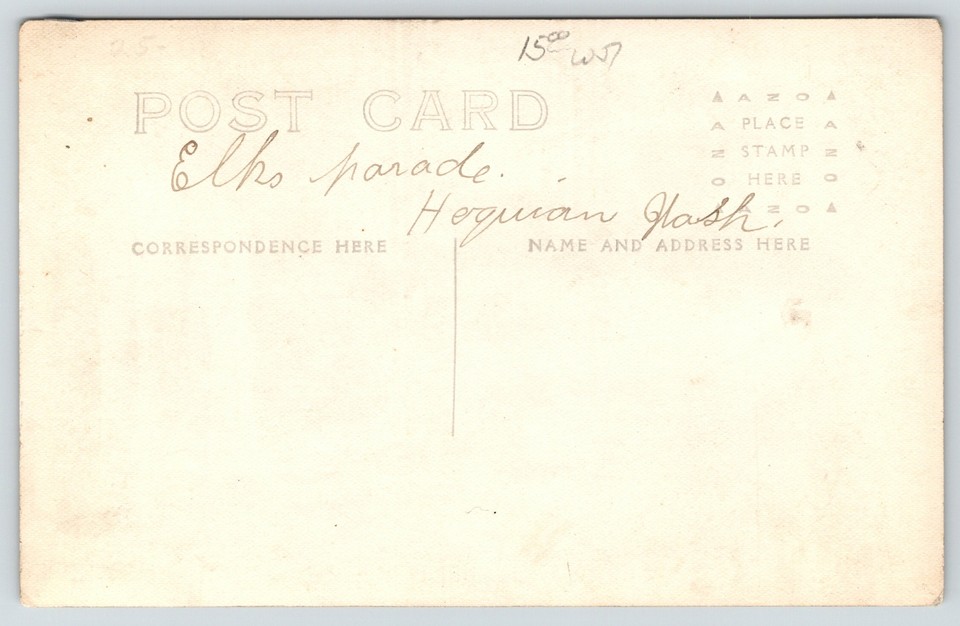 25-
15⁰⁰ WJ
POST CARD
AZO
A PLACE A
Z STAMP Z
O HERE O
AZO
Elks parade.
Hoquian Wash.
CORRESPONDENCE HERE
NAME AND ADDRESS HERE